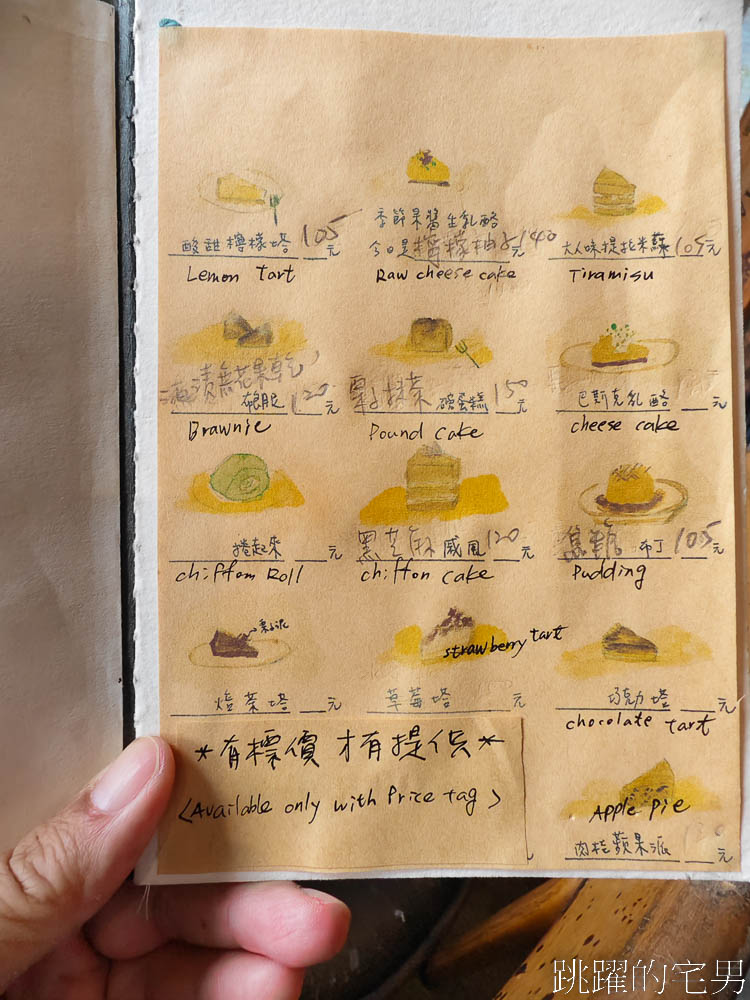 酸甜檸檬塔 105元
Lemon tart
季節果醬生乳酪
今日是檸檬柚子140元
Raw cheese cake
大人味提拉米蘇105元
Tiramisu
酒漬無花果乾
布朗尼 120元
Brawnie
栗子抹茶 磅蛋糕 150元
Pound cake
巴斯克乳酪 __元
cheese cake
捲起來 __元
chiffom Roll
黑芝麻 戚風 120元
chiffon cake
焦糖 布丁 105元
Pudding
焙茶塔 __元
strawberry tart
草莓塔 元
巧克力塔 __元
chocolate tart
*有標價 才有提供*
<Available only with Price tag>
Apple pie
肉桂蘋果派 __元
跳躍的宅男